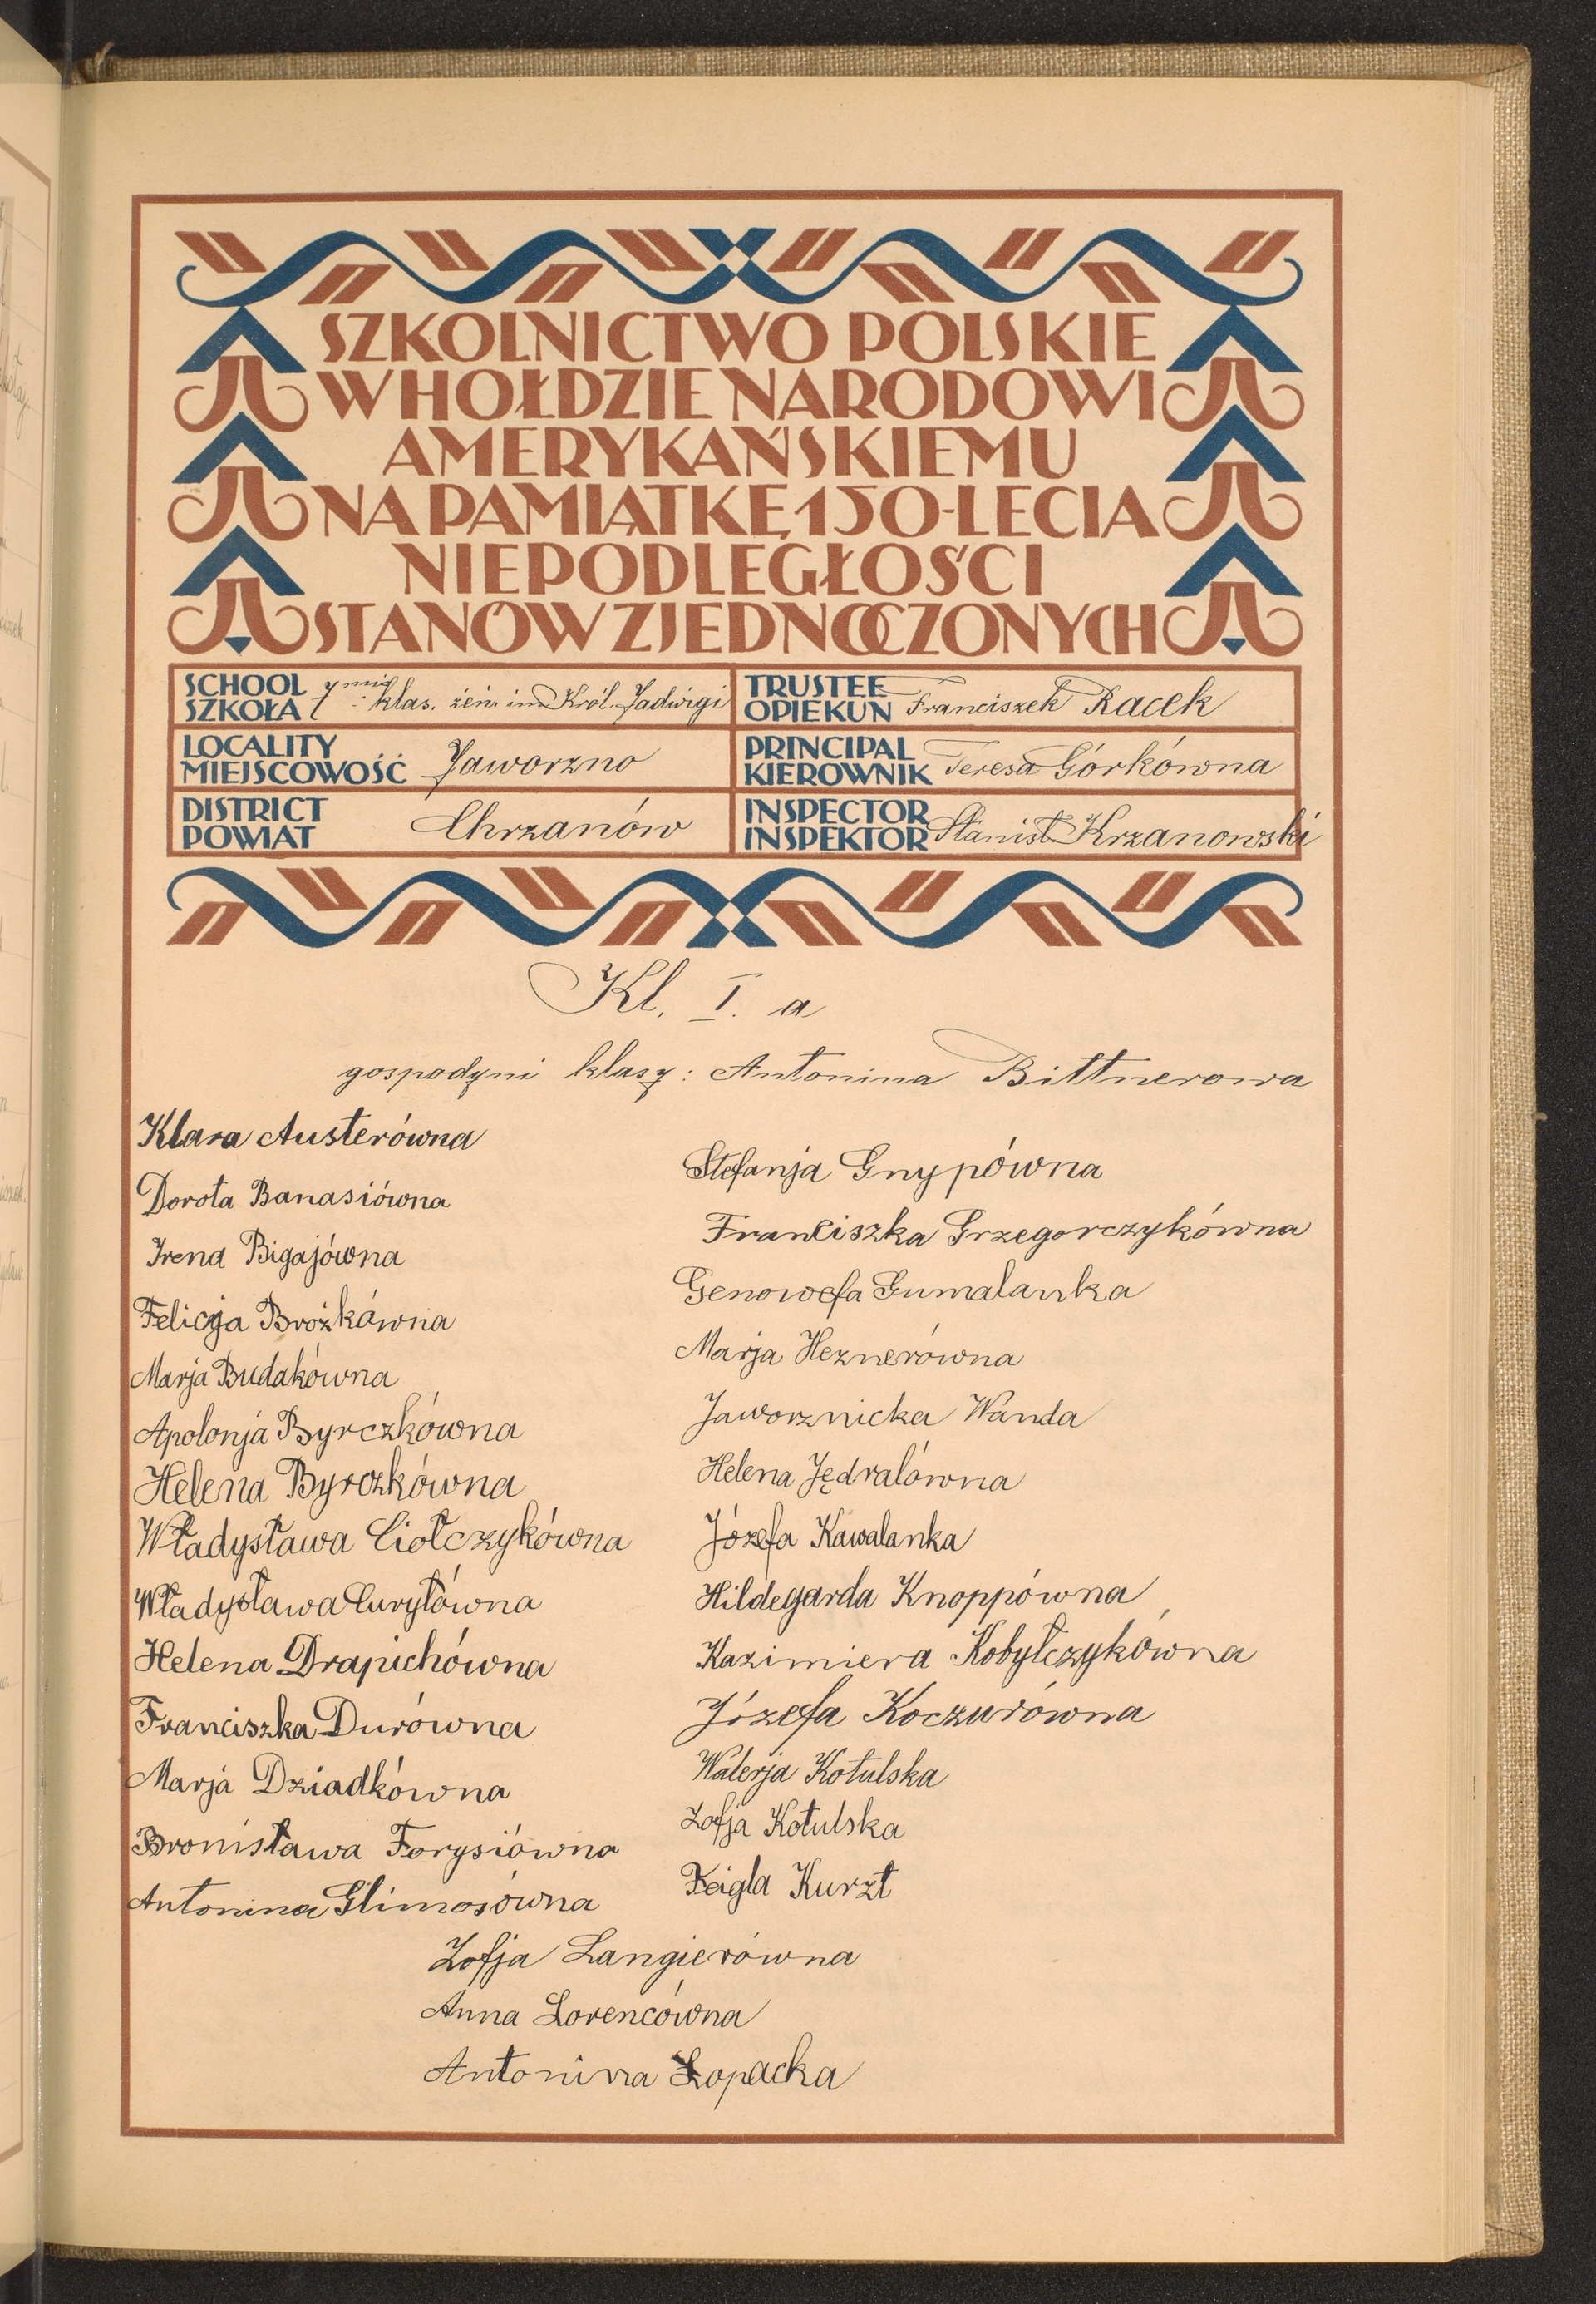 SZKOLNICTWO POLSKIE
W HOŁDZIE NARODOWI
AMERYKAŃSKIEMU
NA PAMIĄTKĘ 150-LECIA
NIEPODLEGŁOŚCI
STANÓW ZJEDNOCZONYCH
SCHOOL
SZKOŁA 7 mio klas. żeń. im Król. Jadwigi
TRUSTEE
OPIEKUN Franciszek Racek
LOCALITY
MIEJSCOWOŚĆ Jaworzno
PRINCIPAL
KIEROWNIK Teresa Górkówna
DISTRICT
POWIAT Chrzanów
INSPECTOR
INSPEKTOR Stanisł. Krzanowski
Kl. I. a
gospodyni klasy: Antonina Bittnerowa
Klara Austerówna
Dorota Banasiówna
Irena Bigajówna
Felicja Brożkówna
Marja Budakówna
Apolonja Byrczkówna
Helena Byrczkówna
Władysława Ciołczykówna
Władysława Curyłówna
Helena Drapichówna
Franciszka Durówna
Marja Dziadkówna
Bronisława Forysiówna
Antonina Glimosówna
Stefanja Gnypówna
Franciszka Grzegorczykówna
Genowefa Gumalanka
Marja Heznerówna
Jaworznicka Wanda
Helena Jędralówna
Józefa Kawalanka
Hildegarda Knoppówna
Kazimiera Kobyłczykówna
Józefa Koczurówna
Walerja Kotulska
Zofja Kotulska
Feigla Kurzt
Zofja Langierówna
Anna Lorencówna
Antonina Łopacka